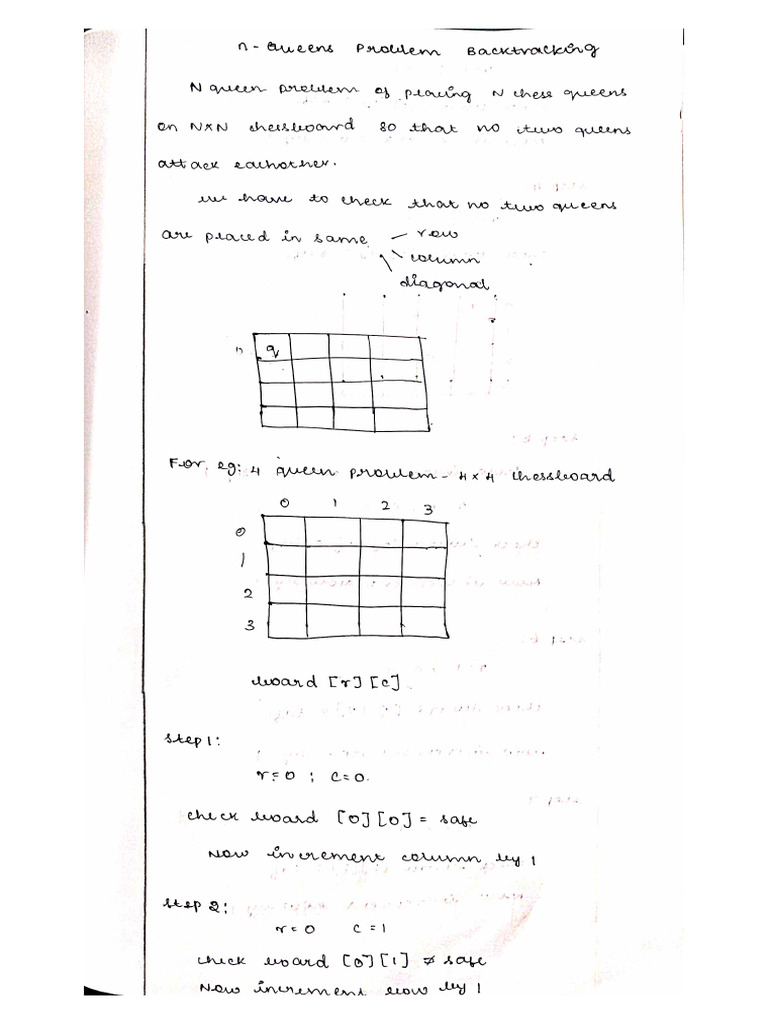 n-Queens Problem Backtracking
N queen problem of placing N chess queens
on N×N chessboard so that no two queens
attack eachother.
we have to check that no two queens
are placed in same - row
\ column
\ diagonal
q
For eg: 4 queen problem - 4×4 chessboard
0 1 2 3
0
1
2
3
board [r] [c]
Step 1:
r=0 ; c=0.
check board [0] [0] = safe
Now increment column by 1
Step 2:
r=0 c=1
check board [0] [1] ≠ safe
Now increment row by 1